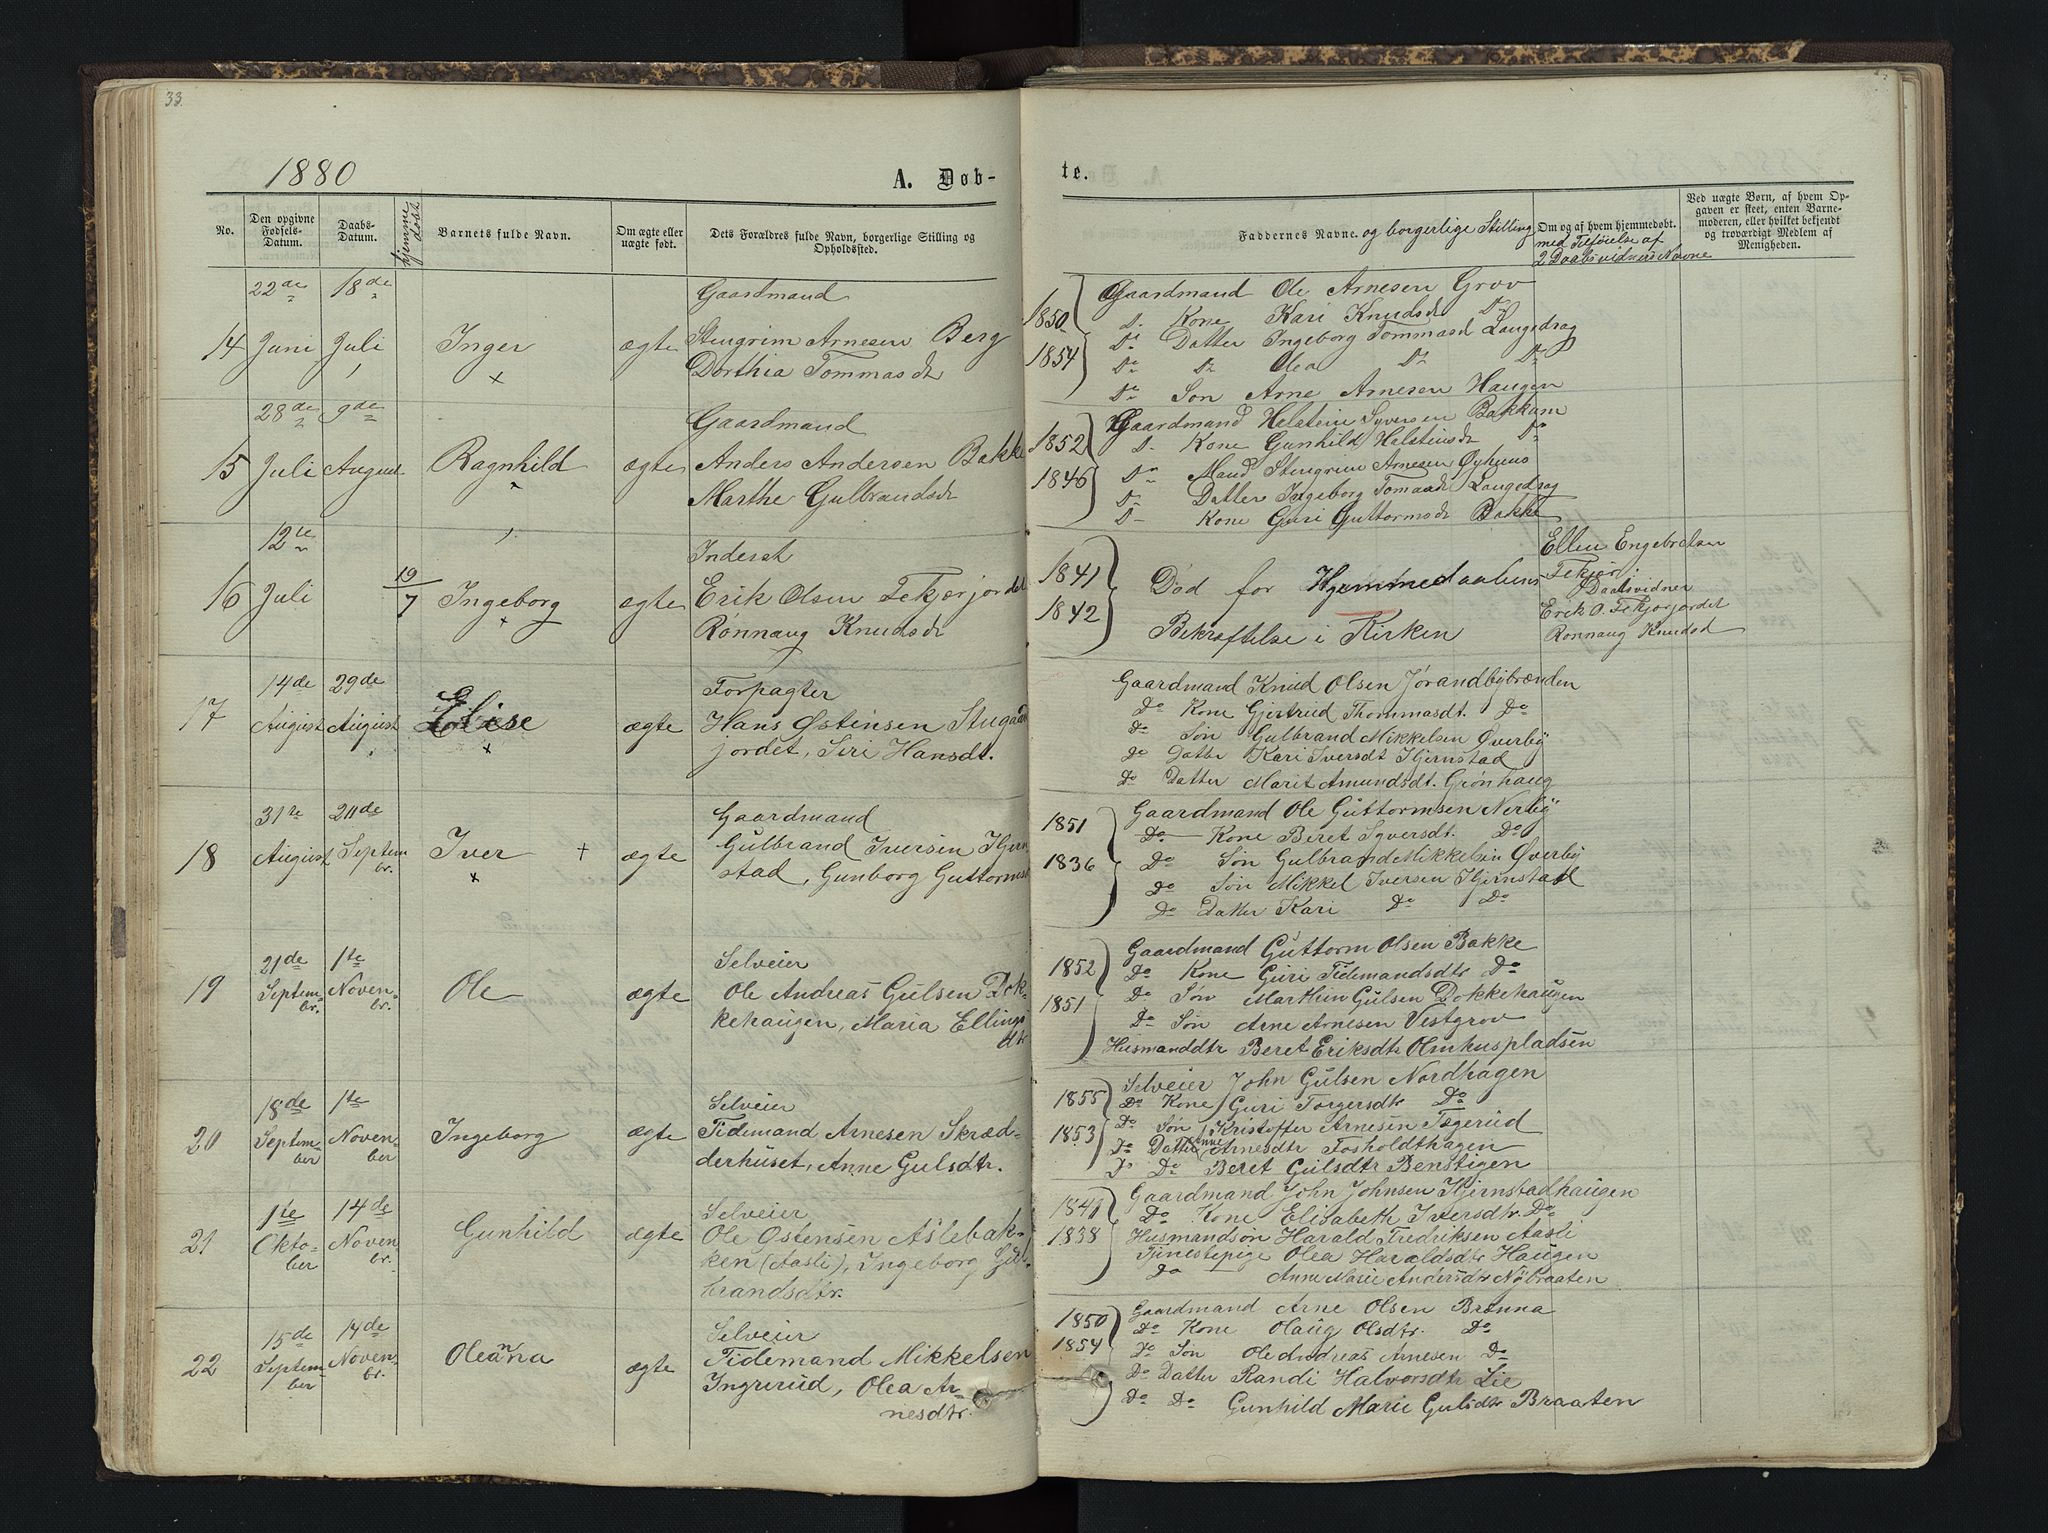 33.
1880
A. Døb-
No.
Den opgivne Fødsels-Datum.
Daabs-Datum.
hjemme døbt
Barnets fulde Navn.
Om ægte eller uægte født.
Dets Forældres fulde Navn, borgerlige Stilling og Opholdsted.
22de 18de Gaardmand
14 Juni Juli Inger ægte Stengrim Arnesen Berg
Dorthia Tommasdt
28de 9de Gaardmand
15 Juli August Ragnhild ægte Anders Andersen Bakke
Marthe Gulbrandsdt
12te Inderst
16 Juli 19/7 Ingeborg ægte Erik Olsen Tekjørjordet
Rønnaug Knudsdt
14de 29de Forpagter
17 August August Elise ægte Hans Østensen Stugaard
jordet, Siri Hansdt.
31te Gaardmand
18 August Septem ber. Iver + ægte Gulbrand Iversen Hjern
stad, Gunborg Guttormsdt
21de 1ste Selveier
19 Septem- br. Noven- br. Ole ægte Ole Andreas Gulsen Dok-
kehaugen, Maria Ellings
dtr
18de 1ste Selveier
20 Septem- ber Noven- ber Ingeborg ægte Tidemand Arnesen Skræd-
derhuset, Anne Gulsdtr.
1ste 14de Selveier
21 Okto- ber Noven br. Gunhild ægte Ole Østensen Aslebak-
ken (Aasli), Ingeborg Gul-
brandsdtr.
15de 14de Selveier
22 Septem- ber Noven- br. Oleanna ægte Tidemand Mikkelsen
Ingrerud, Olea Ar-
nesdtr.
te.
Faddernes Navne og borgerlige Stilling
Om og af hvem hjemmedøbt.
med Tilføielse af
2 Daabsvidners Navne
Ved uægte Børn, af hvem Op-
gaven er skeet, enten Barne-
moderen, eller hvilket bekjendt
og troværdigt Medlem af
Menigheden.
Gaardmand Ole Arnesen Grov
1850 D. Kone Kari Knudsdt Do
Do Datter Ingeborg Tommasd Langedrag
1854 Do Do Olea Do Do
Do Søn Arne Arnesen Haugen
Gaardmand Helstein Syversen Bakkom
1852 D. Kone Gunhild Helsteinsdt Do
1846 Do Mand Stengrim Arnesen
Do Datter Ingeborg Tomasdt Langedrag
D- Kone Guri Guttormsdt Bakke
Ellen Engebretsen
1841 Død før Hjemmedaabens Tekjør
Daabsvidner
1842 Bekræftelse i Kirken Erik O. Tekjørjordet
Rønnaug Knudsd
Gaardmand Knud Olsen Jørandbybrænden
Do Kone Gjertrud Thommasdt. Do
Do Søn Gulbrand Mikkelsen Øverby
Do Datter Kari Iversdt Hjernstad
Do Datter Marit Amundsdt. Grønhaug
Gaardmand Ole Guttormsen Nerby
1851 Do Kone Beret Syversdt. Do
1836 Do Søn Gulbrand Mikkelsen Øverby
Do Søn Mikkel Iversen Hjernstad
Do Datter Kari Do Do
Gaardmand Guttorm Olsen Bakke
1852 Do Kone Guri Tidemandsdtr Do
1851 Do Søn Marthin Gulsen Dokkehaugen
Do Søn Arne Arnesen Vestgrov
Husmanddtr Beret Eriksdtr Olmhuspladsen
Selveier John Gulsen Nordhagen
1855 Do Kone Guri Torgersdtr Do
1853 Do Søn Kristoffer Arnesen Tøgerud
Do Datter Anne Arnesdtr Fosholdthagen
Do Do Beret Gulsdtr Benstigen
Gaardmand John Johnsen Hjernstadhaugen
1841 Do Kone Elisabeth Iversdtr. Do
1838 Husmandsøn Harald Fredriksen Aasli
Tjenestepige Olea Haraldsdtr Haugen
Do Anne Marie Andersdtr Nybraaten
1850 Gaardmand Arne Olsen Brenna
Do Kone Olaug Olsdtr. Do
1854 Do Søn Ole Andreas Arnesen Do
Do Datter Randi Halvorsdtr Lie
Do Do Gunhild Marie Gulsdtr Braaten